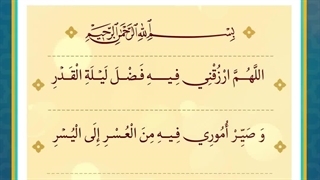 بِسْمِ اللهِ الرَّحْمٰنِ الرَّحِيْمِ
اللَّهُمَّ ارْزُقْنِي فِيهِ فَضْلَ لَيْلَةِ الْقَدْرِ
وَ صَيِّرْ أُمُورِي فِيهِ مِنَ الْعُسْرِ إِلَى الْيُسْرِ